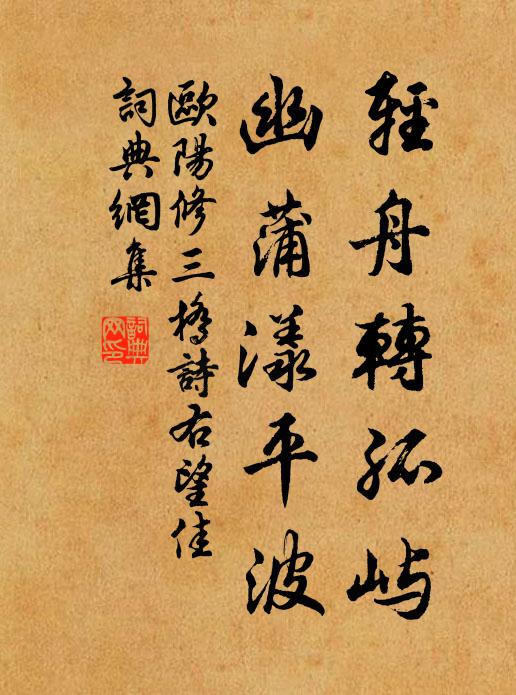 輕舟轉孤嶼
幽蒲漾平波
歐陽修三橋詩右望佳
詞典網集
詞典
网印